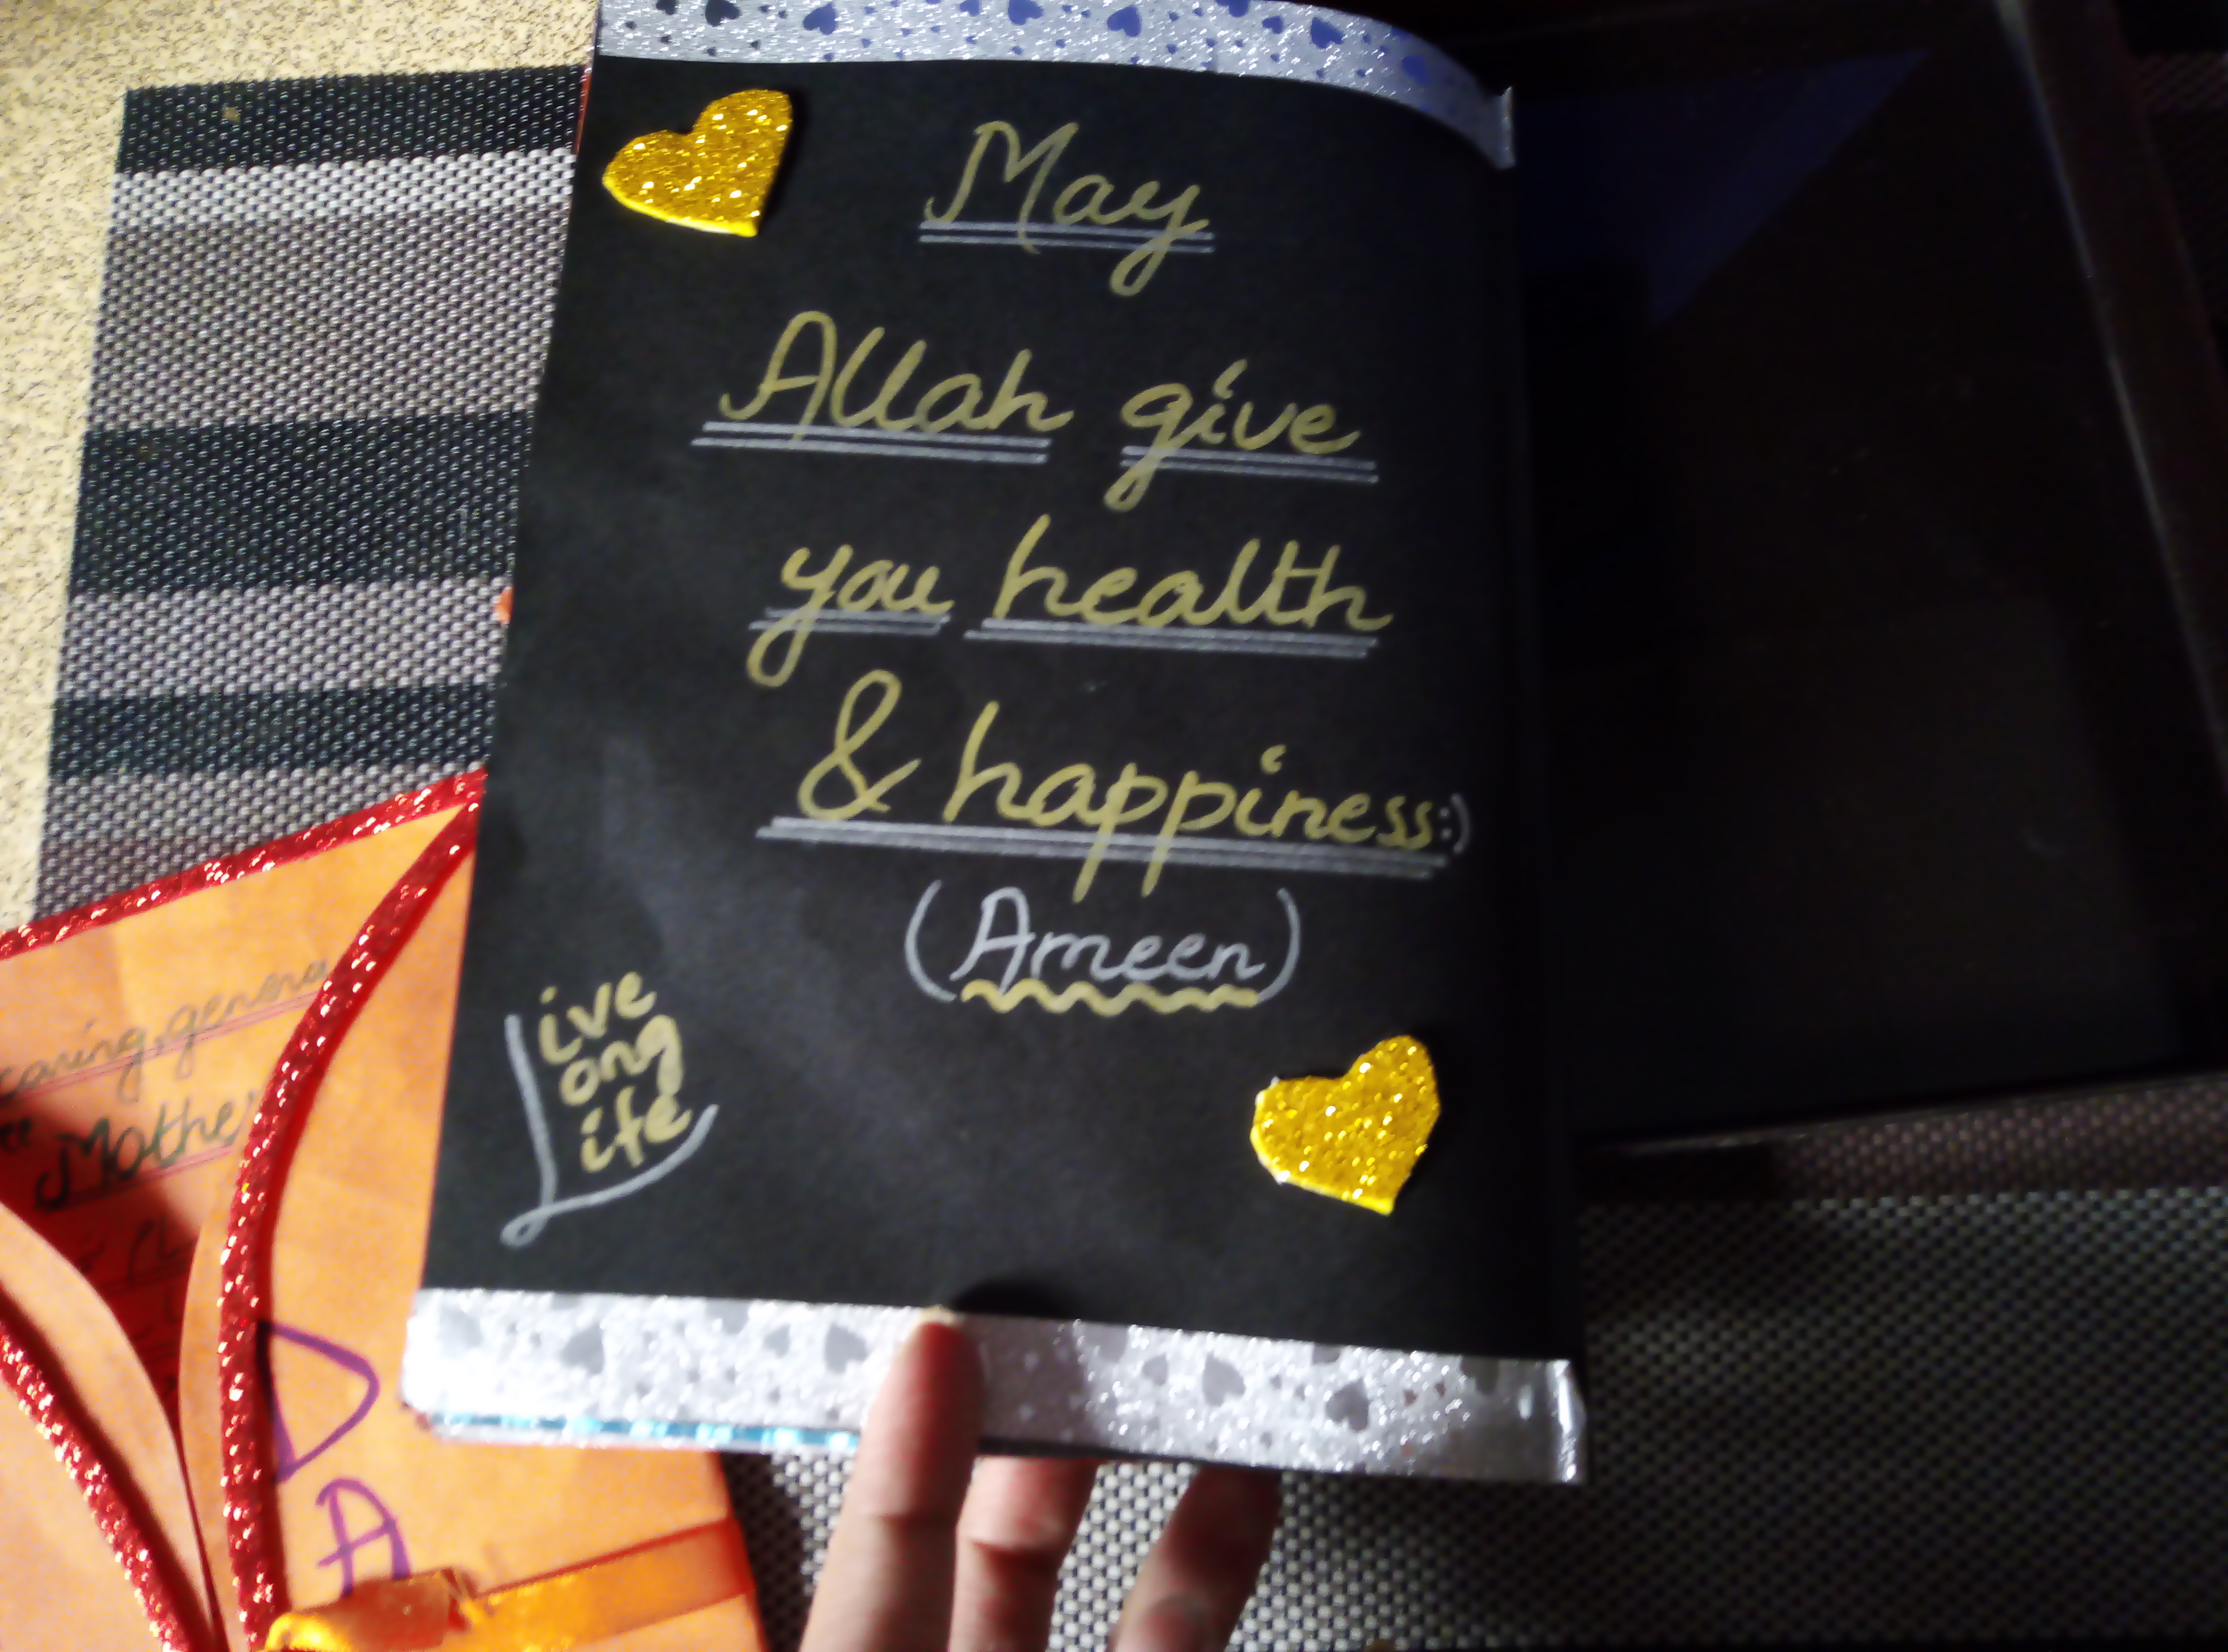 May
Allah give
you health
& happiness:)
(Ameen)
Live
ong
ife
caring, genero
Mothe
D
A